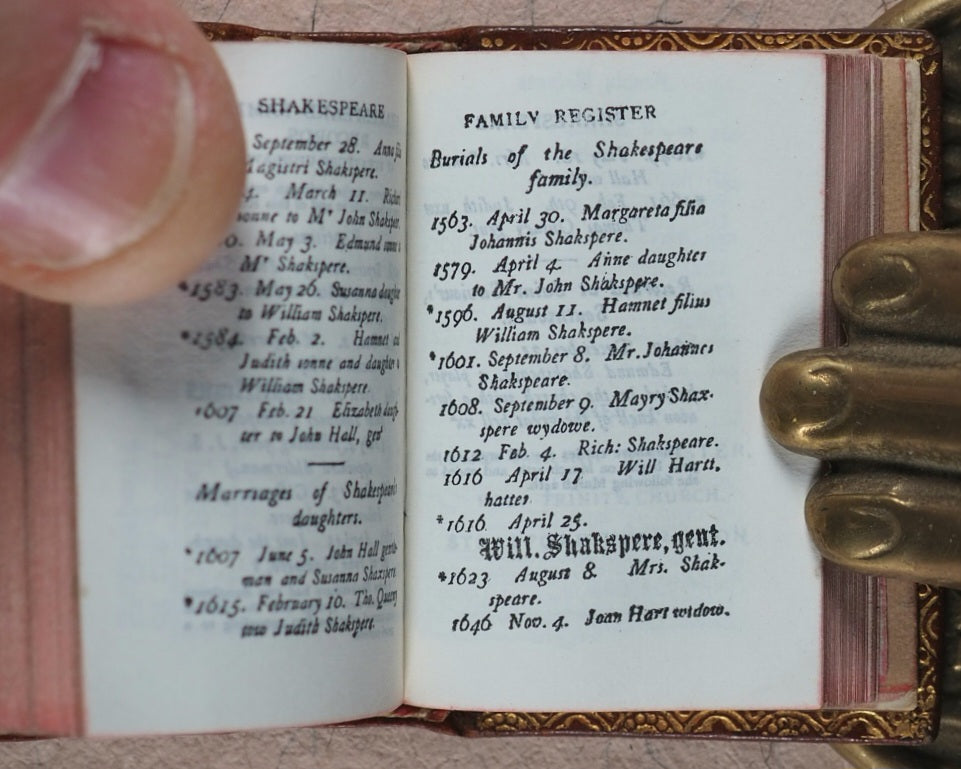 SHAKESPEARE
September 28. Anna
Magistri Shakspere.
March 11.
sonne to Mr John Shakspere
May 3. Edmund sonne
Mr Shakspere.
*1583. May 26. Susanna daughter
to William Shakspere.
*1584. Feb. 2. Hamnet
Judith sonne and daughter
William Shakspere.
*1607 Feb. 21 Elizabeth
ter to John Hall, gen
Marriages of Shakespeare's
daughters.
*1607 June 5. John Hall gentle-
man and Susanna Shaxspere
*1615. February 10. Tho. Queeny
tow Judith Shakspere.
FAMILY REGISTER
Burials of the Shakespeare
family.
1563. April 30. Margareta filia
Johannis Shakspere.
1579. April 4. Anne daughter
to Mr. John Shakspere.
*1596. August 11. Hamnet filius
William Shakspere.
*1601. September 8. Mr. Johannes
Shakspeare.
1608. September 9. Mayry Shax-
spere wydowe.
1612 Feb. 4. Rich: Shakspeare.
1616 April 17 Will Hartt,
hatter
*1616. April 25.
Will. Shakspere, gent.
*1623 August 8. Mrs. Shak-
speare.
1646 Nov. 4. Joan Hart widow.